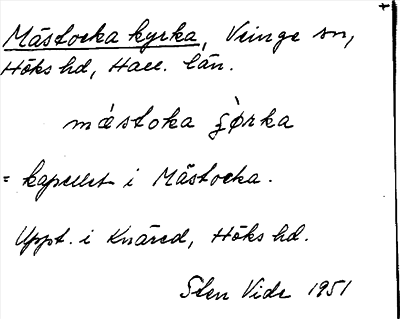 Mästocka kyrka, Veinge sn,
Höks hd, Hall. län.
mǽstoka ʃø̀rka
= kapellet i Mästocka.
Uppt. i Knäred, Höks hd.
Sten Vide 1951